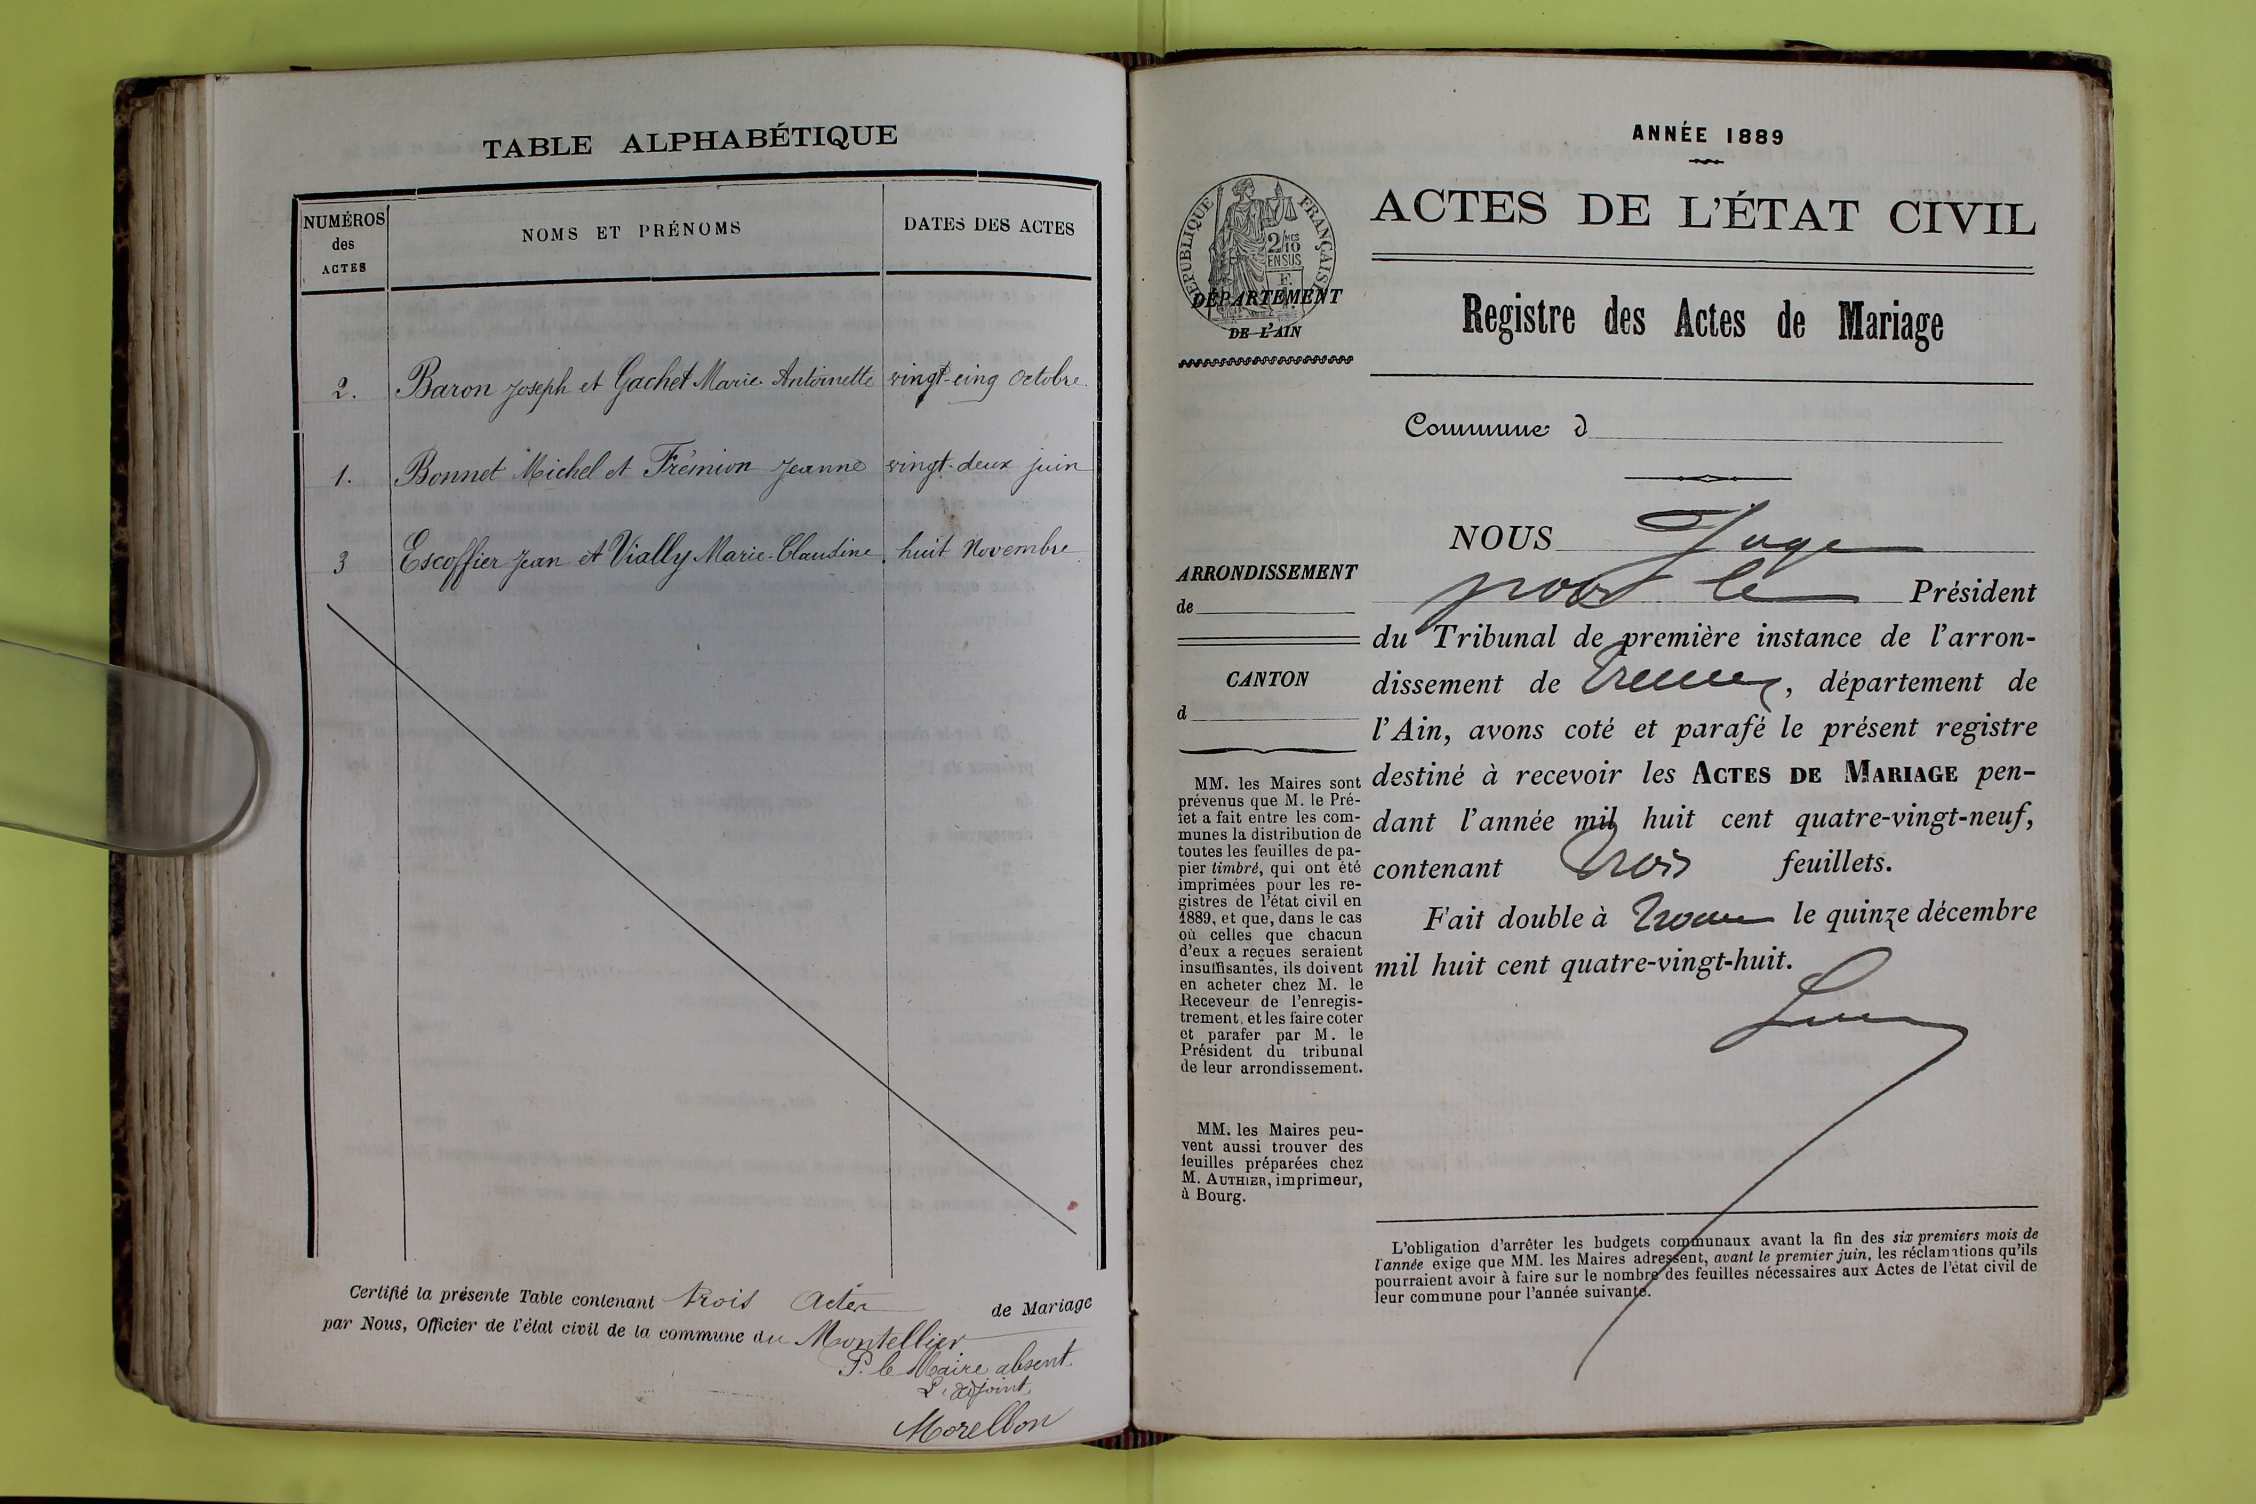 TABLE ALPHABÉTIQUE
NUMÉROS
des
ACTES
NOMS ET PRÉNOMS
DATES DES ACTES
2. Baron Joseph et Gachet Marie-Antoinette vingt-cinq Octobre.
1. Bonnet Michel et Frémion Jeanne vingt-deux juin
3 Escoffier Jean et Vially Marie-Claudine. huit Novembre
Certifié la présente Table contenant trois Actes de Mariage
par Nous, Officier de l'état civil de la commune du Montellier
P. le Maire absent.
L'adjoint,
Morellon
ANNÉE 1889
RÉPUBLIQUE FRANÇAISE
2/10 MES
EN SUS
DÉPARTEMENT
DE L'AIN
ACTES DE L'ÉTAT CIVIL
Registre des Actes de Mariage
Commune d
ARRONDISSEMENT
de
CANTON
d
MM. les Maires sont
prévenus que M. le Pré-
fet a fait entre les com-
munes la distribution de
toutes les feuilles de pa-
pier timbré, qui ont été
imprimées pour les re-
gistres de l'état civil en
1889, et que, dans le cas
où celles que chacun
d'eux a reçues seraient
insuffisantes, ils doivent
en acheter chez M. le
Receveur de l'enregis-
trement, et les faire coter
et parafer par M. le
Président du tribunal
de leur arrondissement.
MM. les Maires peu-
vent aussi trouver des
feuilles préparées chez
M. AUTHIER, imprimeur,
à Bourg.
NOUS Juge
pour le Président
du Tribunal de première instance de l'arron-
dissement de Trévoux, département de
l'Ain, avons coté et parafé le présent registre
destiné à recevoir les ACTES DE MARIAGE pen-
dant l'année mil huit cent quatre-vingt-neuf,
contenant trois feuillets.
Fait double à Trévoux le quinze décembre
mil huit cent quatre-vingt-huit.
L'obligation d'arrêter les budgets communaux avant la fin des six premiers mois de
l'année exige que MM. les Maires adressent, avant le premier juin, les réclamations qu'ils
pourraient avoir à faire sur le nombre des feuilles nécessaires aux Actes de l'état civil de
leur commune pour l'année suivante.